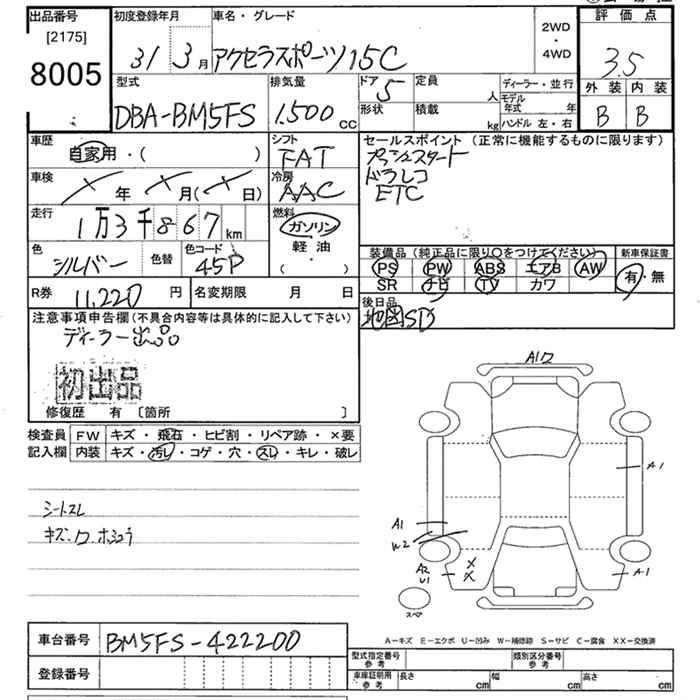 出品番号 初度登録年月 車名・グレード 評価点
[2175]
8005
31 3月 アクセラスポーツ 15C
2WD
・
4WD
3.5
外装 内装
B B
型式 排気量 ドア 定員 ディーラー・並行
DBA-BM5FS 1.500cc 5 人 モデル年式 年
形状 積載 kg ハンドル 左・右
車歴 シフト セールスポイント (正常に機能するものに限ります)
自家用・( ) FAT プッシュスタート
ドラレコ
ETC
車検 冷房
年 月( 日) AAC
走行 燃料
1万3千867km ガソリン
軽油
・( )
色 色替 色コード
シルバー 45P
装備品 (純正品に限り○をつけてください) 新車保証書
PS PW ABS エアB AW 有・無
SR ナビ TV カワ
R券 11,220円 名変期限 月 日
後日品
地図SD
注意事項申告欄 (不具合内容等は具体的に記入して下さい)
ディーラー出品
初出品
修復歴 有 [箇所 ]
検査員 FW キズ・飛石・ヒビ割・リペア跡・×要
記入欄 内装 キズ・汚レ・コゲ・穴・スレ・キレ・破レ
シートスレ
A1
A1
W2
A2
U1
A1
スペア
A-キズ E-エクボ U-凹み W-補修跡 S-サビ C-腐食 XX-交換済
車台番号 BM5FS-422200
登録番号
型式指定番号 参考 類別区分番号 参考
車庫証明用 参考 長さ cm 幅 cm 高さ cm